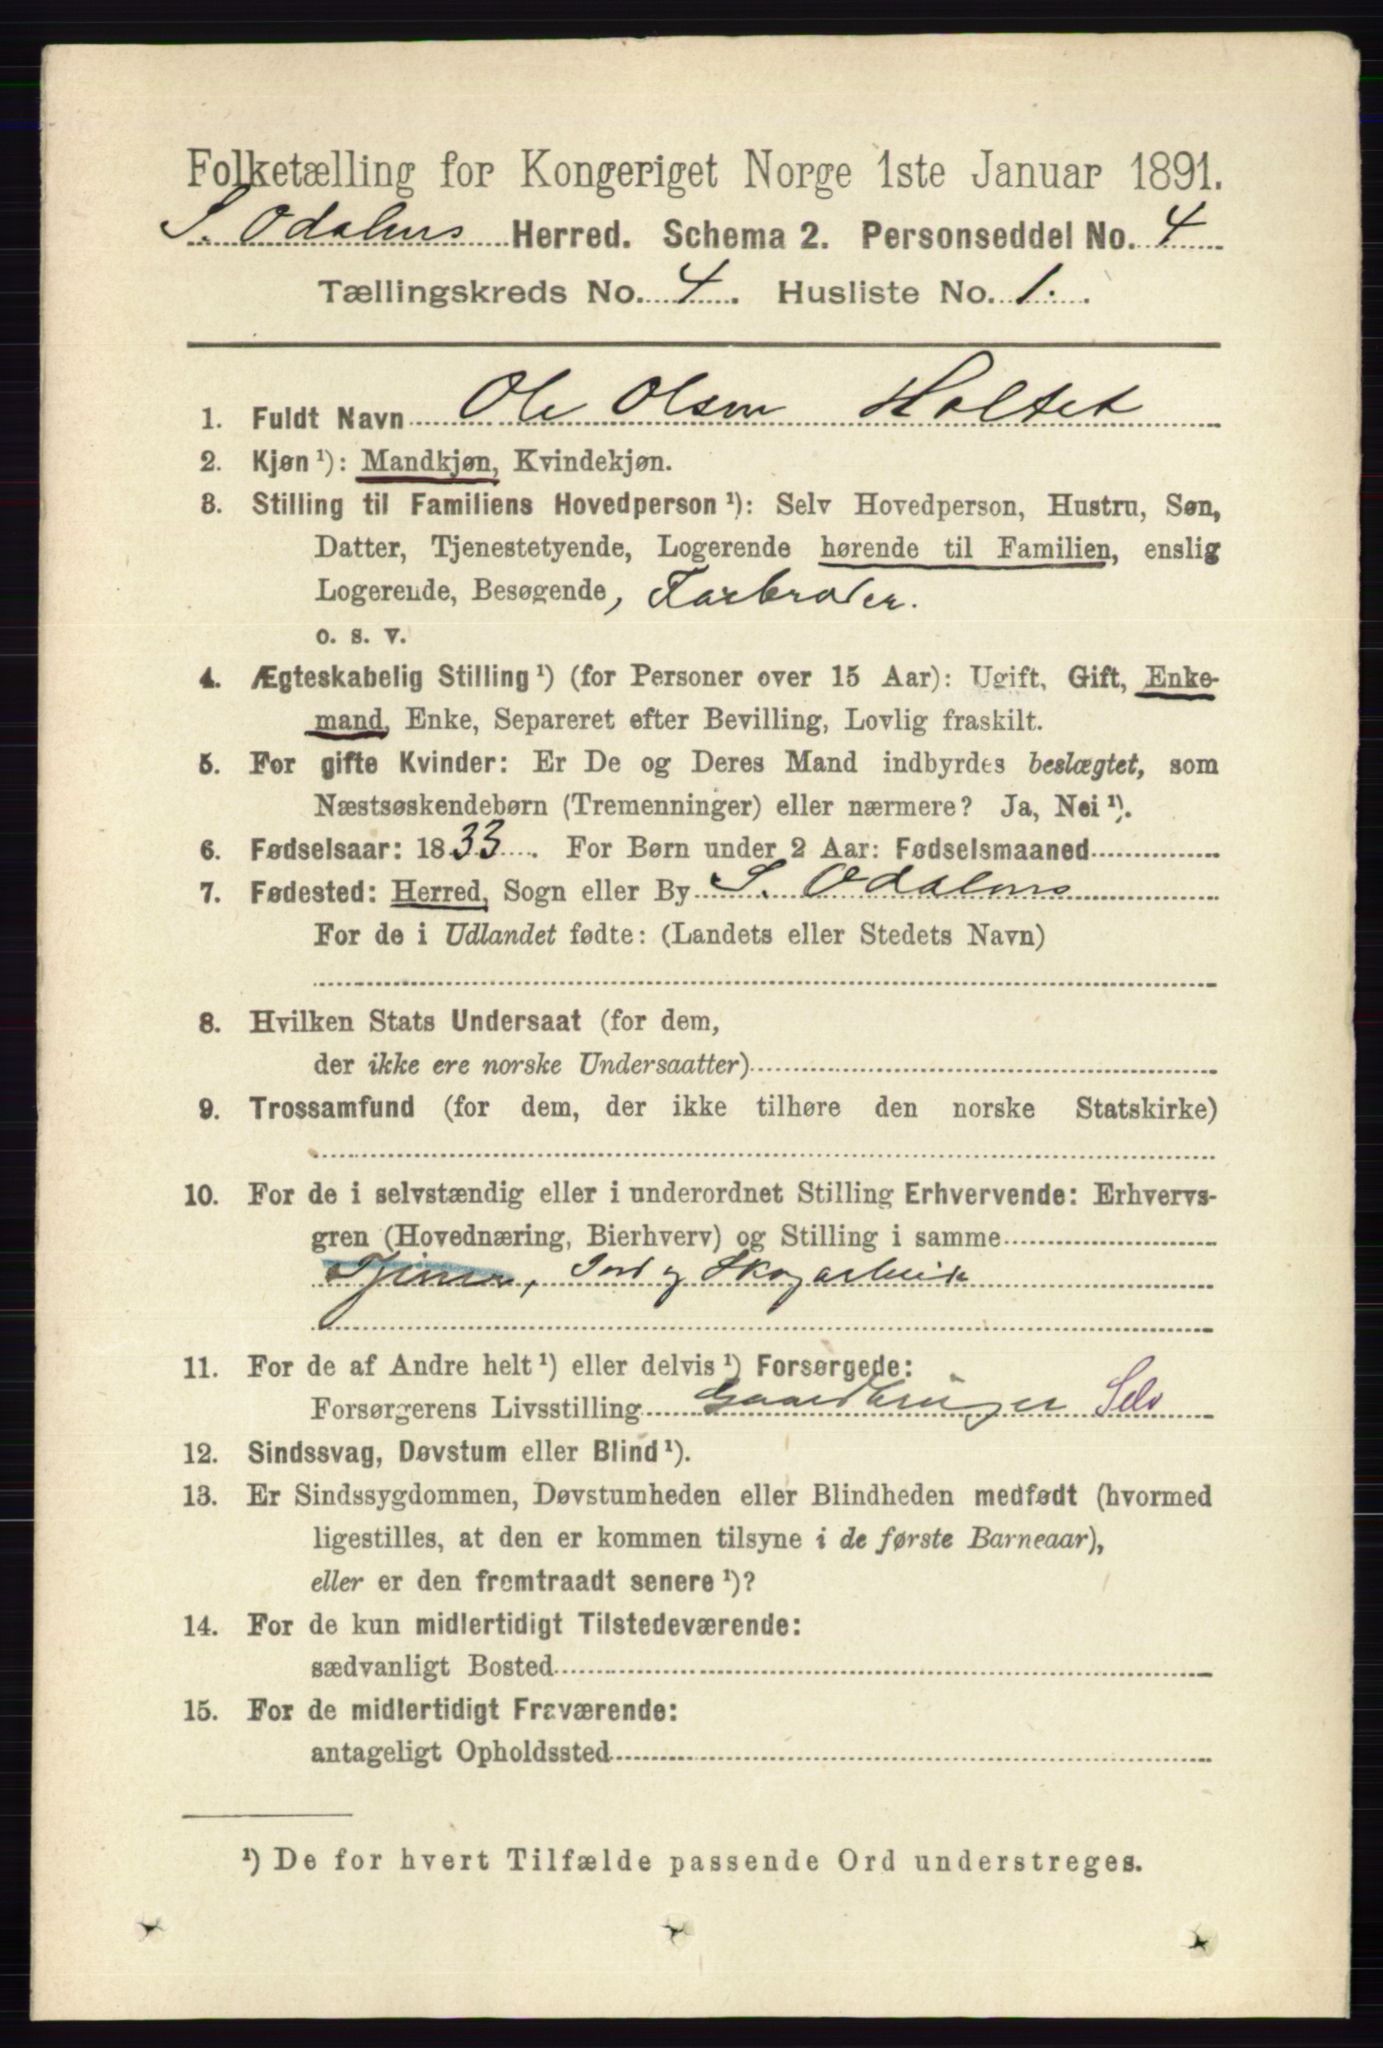 Folketælling for Kongeriget Norge 1ste Januar 1891.
S. Odalens Herred. Schema 2. Personseddel No. 4
Tællingskreds No. 4. Husliste No. 1.
1. Fuldt Navn Ole Olsen Holtet
2. Kjøn ¹): Mandkjøn, Kvindekjøn.
3. Stilling til Familiens Hovedperson ¹): Selv Hovedperson, Hustru, Søn,
Datter, Tjenestetyende, Logerende hørende til Familien, enslig
Logerende, Besøgende, Farbroder.
o. s. v.
4. Ægteskabelig Stilling ¹) (for Personer over 15 Aar): Ugift, Gift, Enke-
mand, Enke, Separeret efter Bevilling, Lovlig fraskilt.
5. For gifte Kvinder: Er De og Deres Mand indbyrdes beslægtet, som
Næstsøskendebørn (Tremenninger) eller nærmere? Ja, Nei ¹).
6. Fødselsaar: 1833. For Børn under 2 Aar: Fødselsmaaned
7. Fødested: Herred, Sogn eller By S. Odalens
For de i Udlandet fødte: (Landets eller Stedets Navn)
8. Hvilken Stats Undersaat (for dem,
der ikke ere norske Undersaatter)
9. Trossamfund (for dem, der ikke tilhøre den norske Statskirke)
10. For de i selvstændig eller i underordnet Stilling Erhvervende: Erhvervs-
gren (Hovednæring, Bierhverv) og Stilling i samme
Tjener, Jord og Skogarbeide
11. For de af Andre helt ¹) eller delvis ¹) Forsørgede:
Forsørgerens Livsstilling Gaardbruger Selv
12. Sindssvag, Døvstum eller Blind ¹).
13. Er Sindssygdommen, Døvstumheden eller Blindheden medfødt (hvormed
ligestilles, at den er kommen tilsyne i de første Barneaar),
eller er den fremtraadt senere ¹)?
14. For de kun midlertidigt Tilstedeværende:
sædvanligt Bosted
15. For de midlertidigt Fraværende:
antageligt Opholdssted
¹) De for hvert Tilfælde passende Ord understreges.